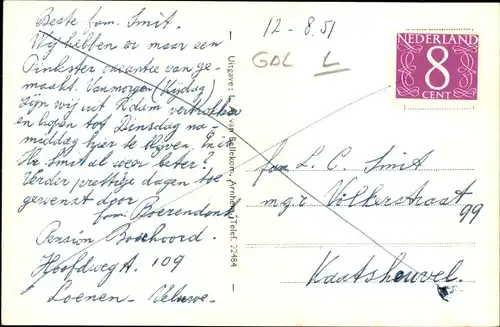 Beste fam. Smit.
Wij hebben er maar een
Pinkster vacantie van ge-
maakt. Van morgen (Vrijdag)
zijn wij uit R'dam vertrokken
en hopen tot Dinsdag na-
middag hier te blijven. En is
Hr. Smit al weer beter?
Verder prettige dagen toe
gewenst door
fam. Boerendonk
Pension Boschoord.
Hoofdweg A. 109
Loenen - Veluwe.
Uitgave: van Bellekom, Arnhem, Telef. 22484
12-8.51
GDL L
NEDERLAND
8
CENT
fam L. C. Smit
mgr. Völkerstraat
99
Kaatsheuvel.